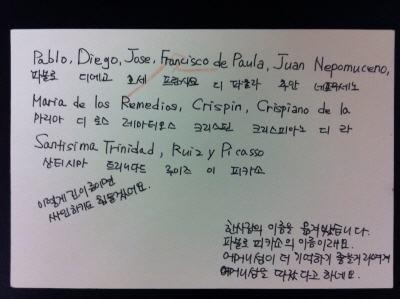 Pablo, Diego, Jose, Francisco de Paula, Juan Nepomuceno,
파블로 디에고 호세 프란시스코 디 파울라 후안 네포무세노
Maria de los Remedios, Crispin, Crispiano de la
마리아 디 로스 레메디오스 크리스핀 크리스피아노 디 라
Santisima Trinidad, Ruiz y Picasso
산티시마 트리니다드 루이스 이 피카소
이렇게 긴 이름이면
싸인하기도 힘들겠네요.
한사람의 이름을 옮겨봤습니다.
파블로 피카소의 이름이래요.
어머니성이 더 기억하기 좋을거라여겨
어머니성을 따랐다고 하네요.